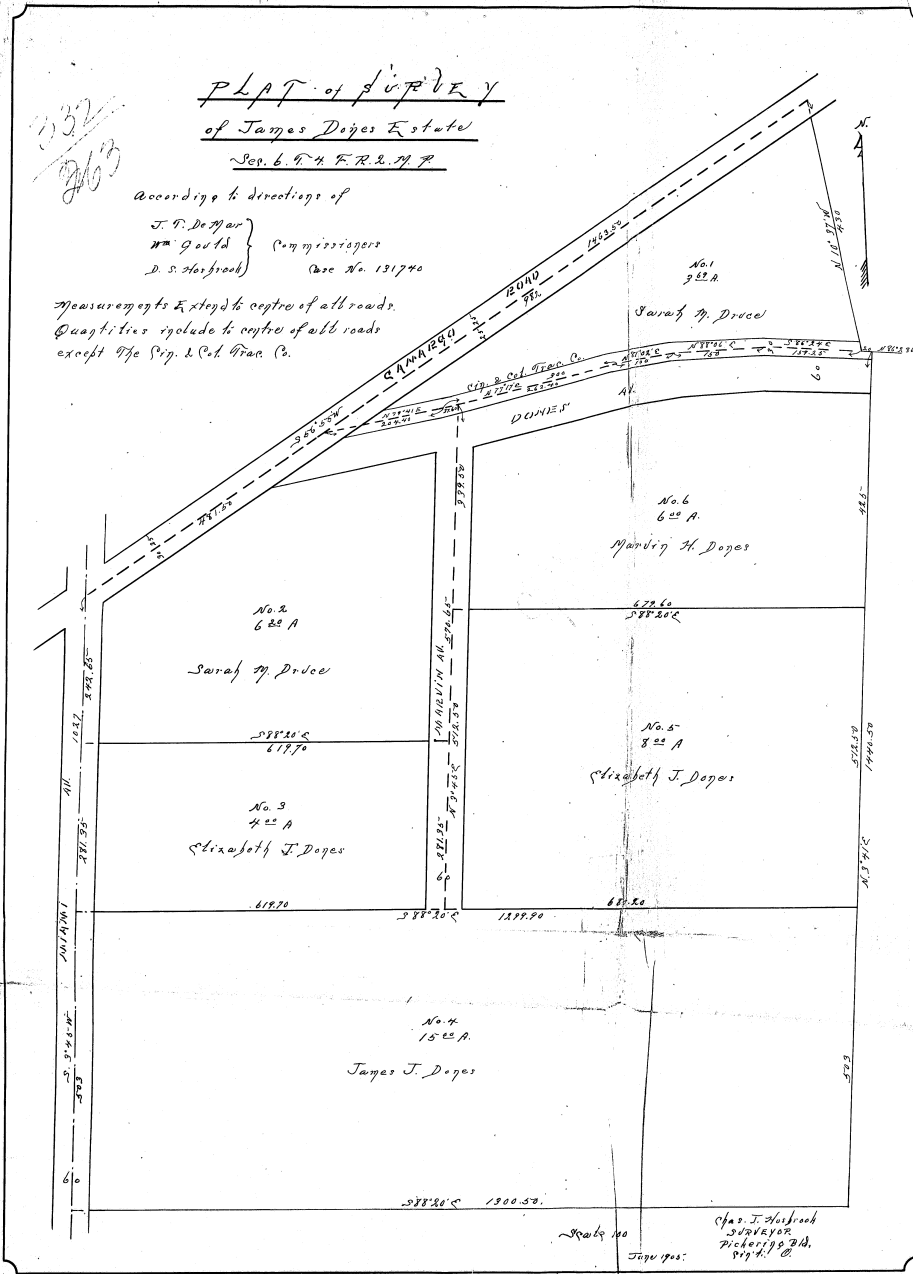 PLAT of SURVEY
of James Dones Estate
Sec. 6. T. 4. F. R. 2. M. P.
332
263
According to directions of
J. T. De Mar
Wm Gould
D. S. Hosbrook
Commissioners
Case No. 131740
Measurements Extend to centre of all roads.
Quantities include to centre of all roads
except The Cin. & Col. Trac. Co.
N.
CAMARGO ROAD
982
1463.50
S 56° 56' W
481.50
No. 1
3 69 A.
Sarah M. Druce
Cin. & Col. Trac. Co.
N 79° 41 E
204.40
N 77° 17 E
262.40
300
N 81° 02' E
150
N 88° 06' E
150
S 86° 24 E
157.25
DONES AV.
60
No. 6
6 00 A.
Marvin H. Dones
679.60
S 88° 20' E
No. 2
6 20 A
Sarah M. Druce
S 88° 20' E
619.70
MARVIN AV.
570.65
512.50
No. 5
8 00 A
Elizabeth J. Dones
515.50
1440.50
No. 3
4 00 A
Elizabeth J. Dones
242.65
1027
281.85
AV
619.70
S 88° 20' E
1299.90
681.20
60
No. 4
15 00 A.
James J. Dones
605
605
60
S 88° 20' E 1300.50.
Scale 100
June 1905.
Chas. J. Hosbrook
SURVEYOR
Pickering Bld.
Cin'ti. O.